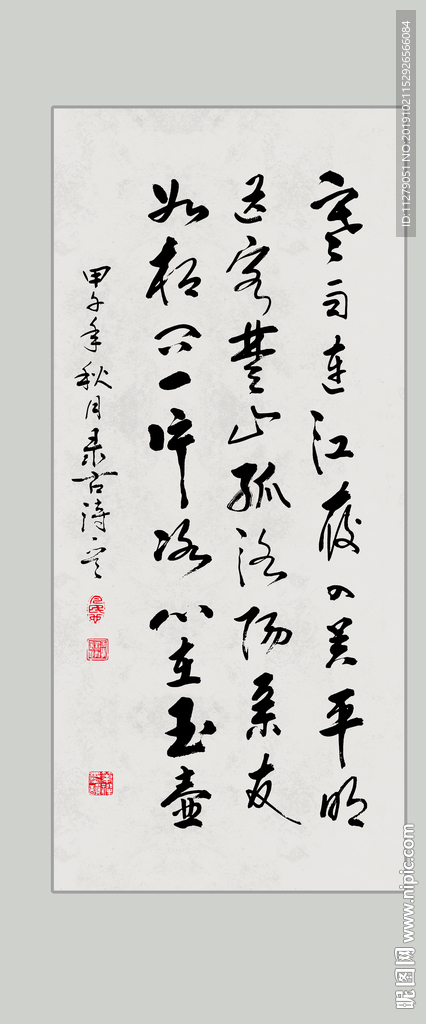 寒雨連江夜入吴平明
送客楚山孤洛陽亲友
如相问一片冰心在玉壶
甲午年秋月录古诗
ID:11279051 NO:20191021152926566084
昵图网 www.nipic.com